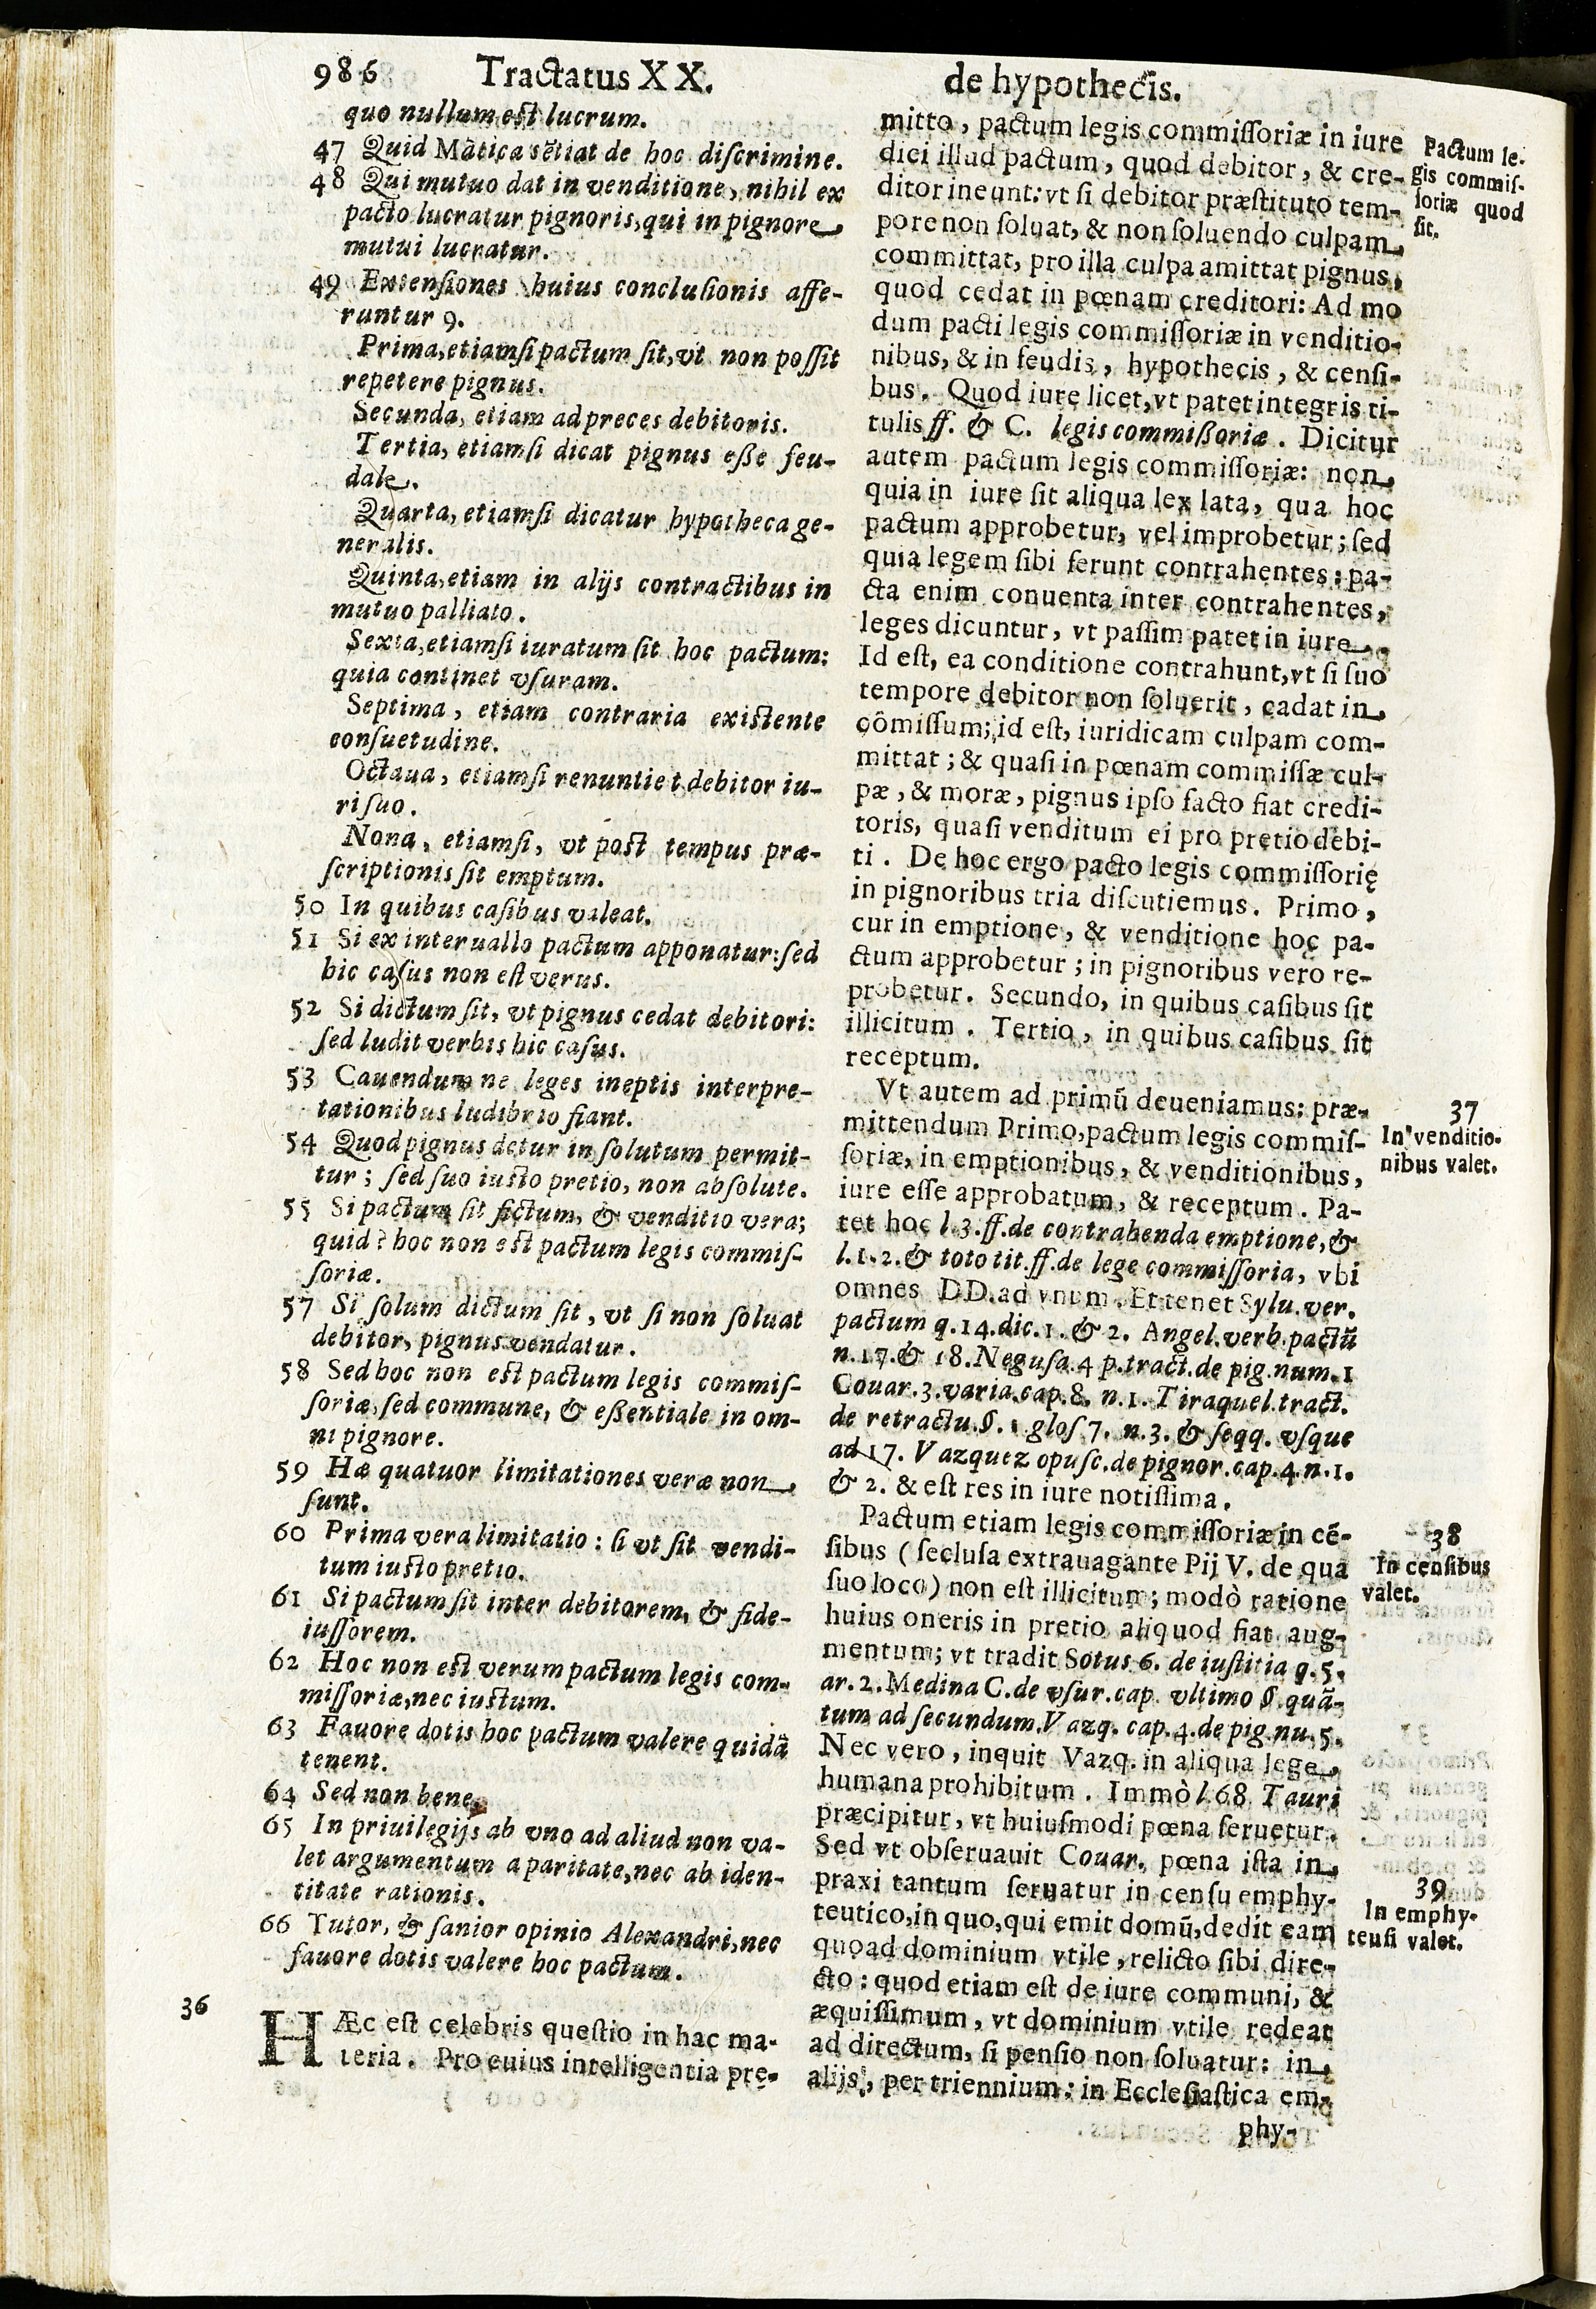 986 Tractatus XX.
quo nullum est lucrum.
47 Quid Mãtica sẽtiat de hoc discrimine.
48 Qui mutuo dat in venditione, nihil ex
pacto lucratur pignoris, qui in pignore
mutui lucratur.
49 Extensiones huius conclusionis affe-
runtur 9.
Prima, etiamsi pactum sit, vt non possit
repetere pignus.
Secunda, etiam ad preces debitoris.
Tertia, etiamsi dicat pignus esse feu-
dale.
Quarta, etiamsi dicatur hypotheca ge-
neralis.
Quinta, etiam in alijs contractibus in
mutuo palliato.
Sexta, etiamsi iuratum sit hoc pactum:
quia continet vsuram.
Septima, etiam contraria existente
consuetudine.
Octaua, etiamsi renuntiet debitor iu-
ri suo.
Nona, etiamsi, vt post tempus præ-
scriptionis sit emptum.
50 In quibus casibus valeat.
51 Si ex interuallo pactum apponatur: sed
hic casus non est verus.
52 Si dictum sit, vt pignus cedat debitori:
sed ludit verbis hic casus.
53 Cauendum ne leges ineptis interpre-
tationibus ludibrio fiant.
54 Quod pignus detur in solutum permit-
tur; sed suo iusto pretio, non absolute.
55 Si pactum sit fictum, & venditio vera;
quid? hoc non est pactum legis commis-
soriæ.
57 Si solum dictum sit, vt si non soluat
debitor, pignus vendatur.
58 Sed hoc non est pactum legis commis-
soriæ, sed commune, & essentiale in om-
ni pignore.
59 Hæ quatuor limitationes veræ non
sunt.
60 Prima vera limitatio: si vt sit vendi-
tum iusto pretio.
61 Si pactum sit inter debitorem, & fide-
iussorem.
62 Hoc non est verum pactum legis com-
missoriæ, nec iustum.
63 Fauore dotis hoc pactum valere quidã
tenent.
64 Sed non bene.
65 In priuilegijs ab vno ad aliud non va-
let argumentum a paritate, nec ab iden-
titate rationis.
66 Tutor, & sanior opinio Alexandri, nec
fauore dotis valere hoc pactum.
36
HÆc est celebris questio in hac ma-
teria. Pro cuius intelligentia prę-
de hypothecis.
mitto, pactum legis commissoriæ in iure
dici illud pactum, quod debitor, & cre-
ditor ineunt: vt si debitor præstituto tem-
pore non soluat, & non soluendo culpam
committat, pro illa culpa amittat pignus,
quod cedat in pœnam creditori: Ad mo
dum pacti legis commissoriæ in venditio-
nibus, & in feudis, hypothecis, & censi-
bus. Quod iure licet, vt patet integris ti-
tulis ff. & C. legis commissoriæ. Dicitur
autem pactum legis commissoriæ: non
quia in iure sit aliqua lex lata, qua hoc
pactum approbetur, vel improbetur; sed
quia legem sibi ferunt contrahentes: pa-
cta enim conuenta inter contrahentes,
leges dicuntur, vt passim patet in iure.
Id est, ea conditione contrahunt, vt si suo
tempore debitor non soluerit, cadat in
cõmissum; id est, iuridicam culpam com-
mittat; & quasi in pœnam commissæ cul-
pæ, & moræ, pignus ipso facto fiat credi-
toris, quasi venditum ei pro pretio debi-
ti. De hoc ergo pacto legis commissorię
in pignoribus tria discutiemus. Primo,
cur in emptione, & venditione hoc pa-
ctum approbetur; in pignoribus vero re-
probetur. Secundo, in quibus casibus sit
illicitum. Tertio, in quibus casibus sit
receptum.
Vt autem ad primũ deueniamus: præ-
mittendum Primo, pactum legis commis-
soriæ, in emptionibus, & venditionibus,
iure esse approbatum, & receptum. Pa-
tet hoc l.3.ff.de contrahenda emptione, &
l.1.2.& toto tit.ff.de lege commissoria, vbi
omnes DD.ad vnum. Et tenet Sylu.ver.
pactum q.14.dic.1.& 2. Angel.verb.pactũ
n.17.& 18.Negusa.4 p.tract.de pig.num.1
Couar.3.varia.cap.8. n.1. Tiraquel.tract.
de retractu.§.1.glos 7. n.3. & seqq. vsque
ad 17. Vazquez opusc.de pignor.cap.4.n.1.
& 2. & est res in iure notissima.
Pactum etiam legis commissoriæ in cẽ-
sibus (seclusa extrauagante Pij V. de qua
suo loco) non est illicitum; modò ratione
huius oneris in pretio aliquod fiat aug-
mentum; vt tradit Sotus 6. de iustitia q.5.
ar.2.Medina C.de vsur.cap. vltimo §.quã-
tum ad secundum.Vazq. cap.4.de pig.nu.5.
Nec vero, inquit Vazq. in aliqua lege
humana prohibitum. Immò l.68 Tauri
præcipitur, vt huiusmodi pœna seruetur.
Sed vt obseruauit Couar. pœna ista in
praxi tantum seruatur in censu emphy-
teutico, in quo, qui emit domũ, dedit eam
quoad dominium vtile, relicto sibi dire-
cto: quod etiam est de iure communi, &
æquissimum, vt dominium vtile redeat
ad directum, si pensio non soluatur: in
alijs, per triennium: in Ecclesiastica em-
phy-
Pactum le-
gis commis-
soriæ quod
sit.
37
In venditio-
nibus valet.
38
In censibus
valet.
39
In emphy-
teusi valet.